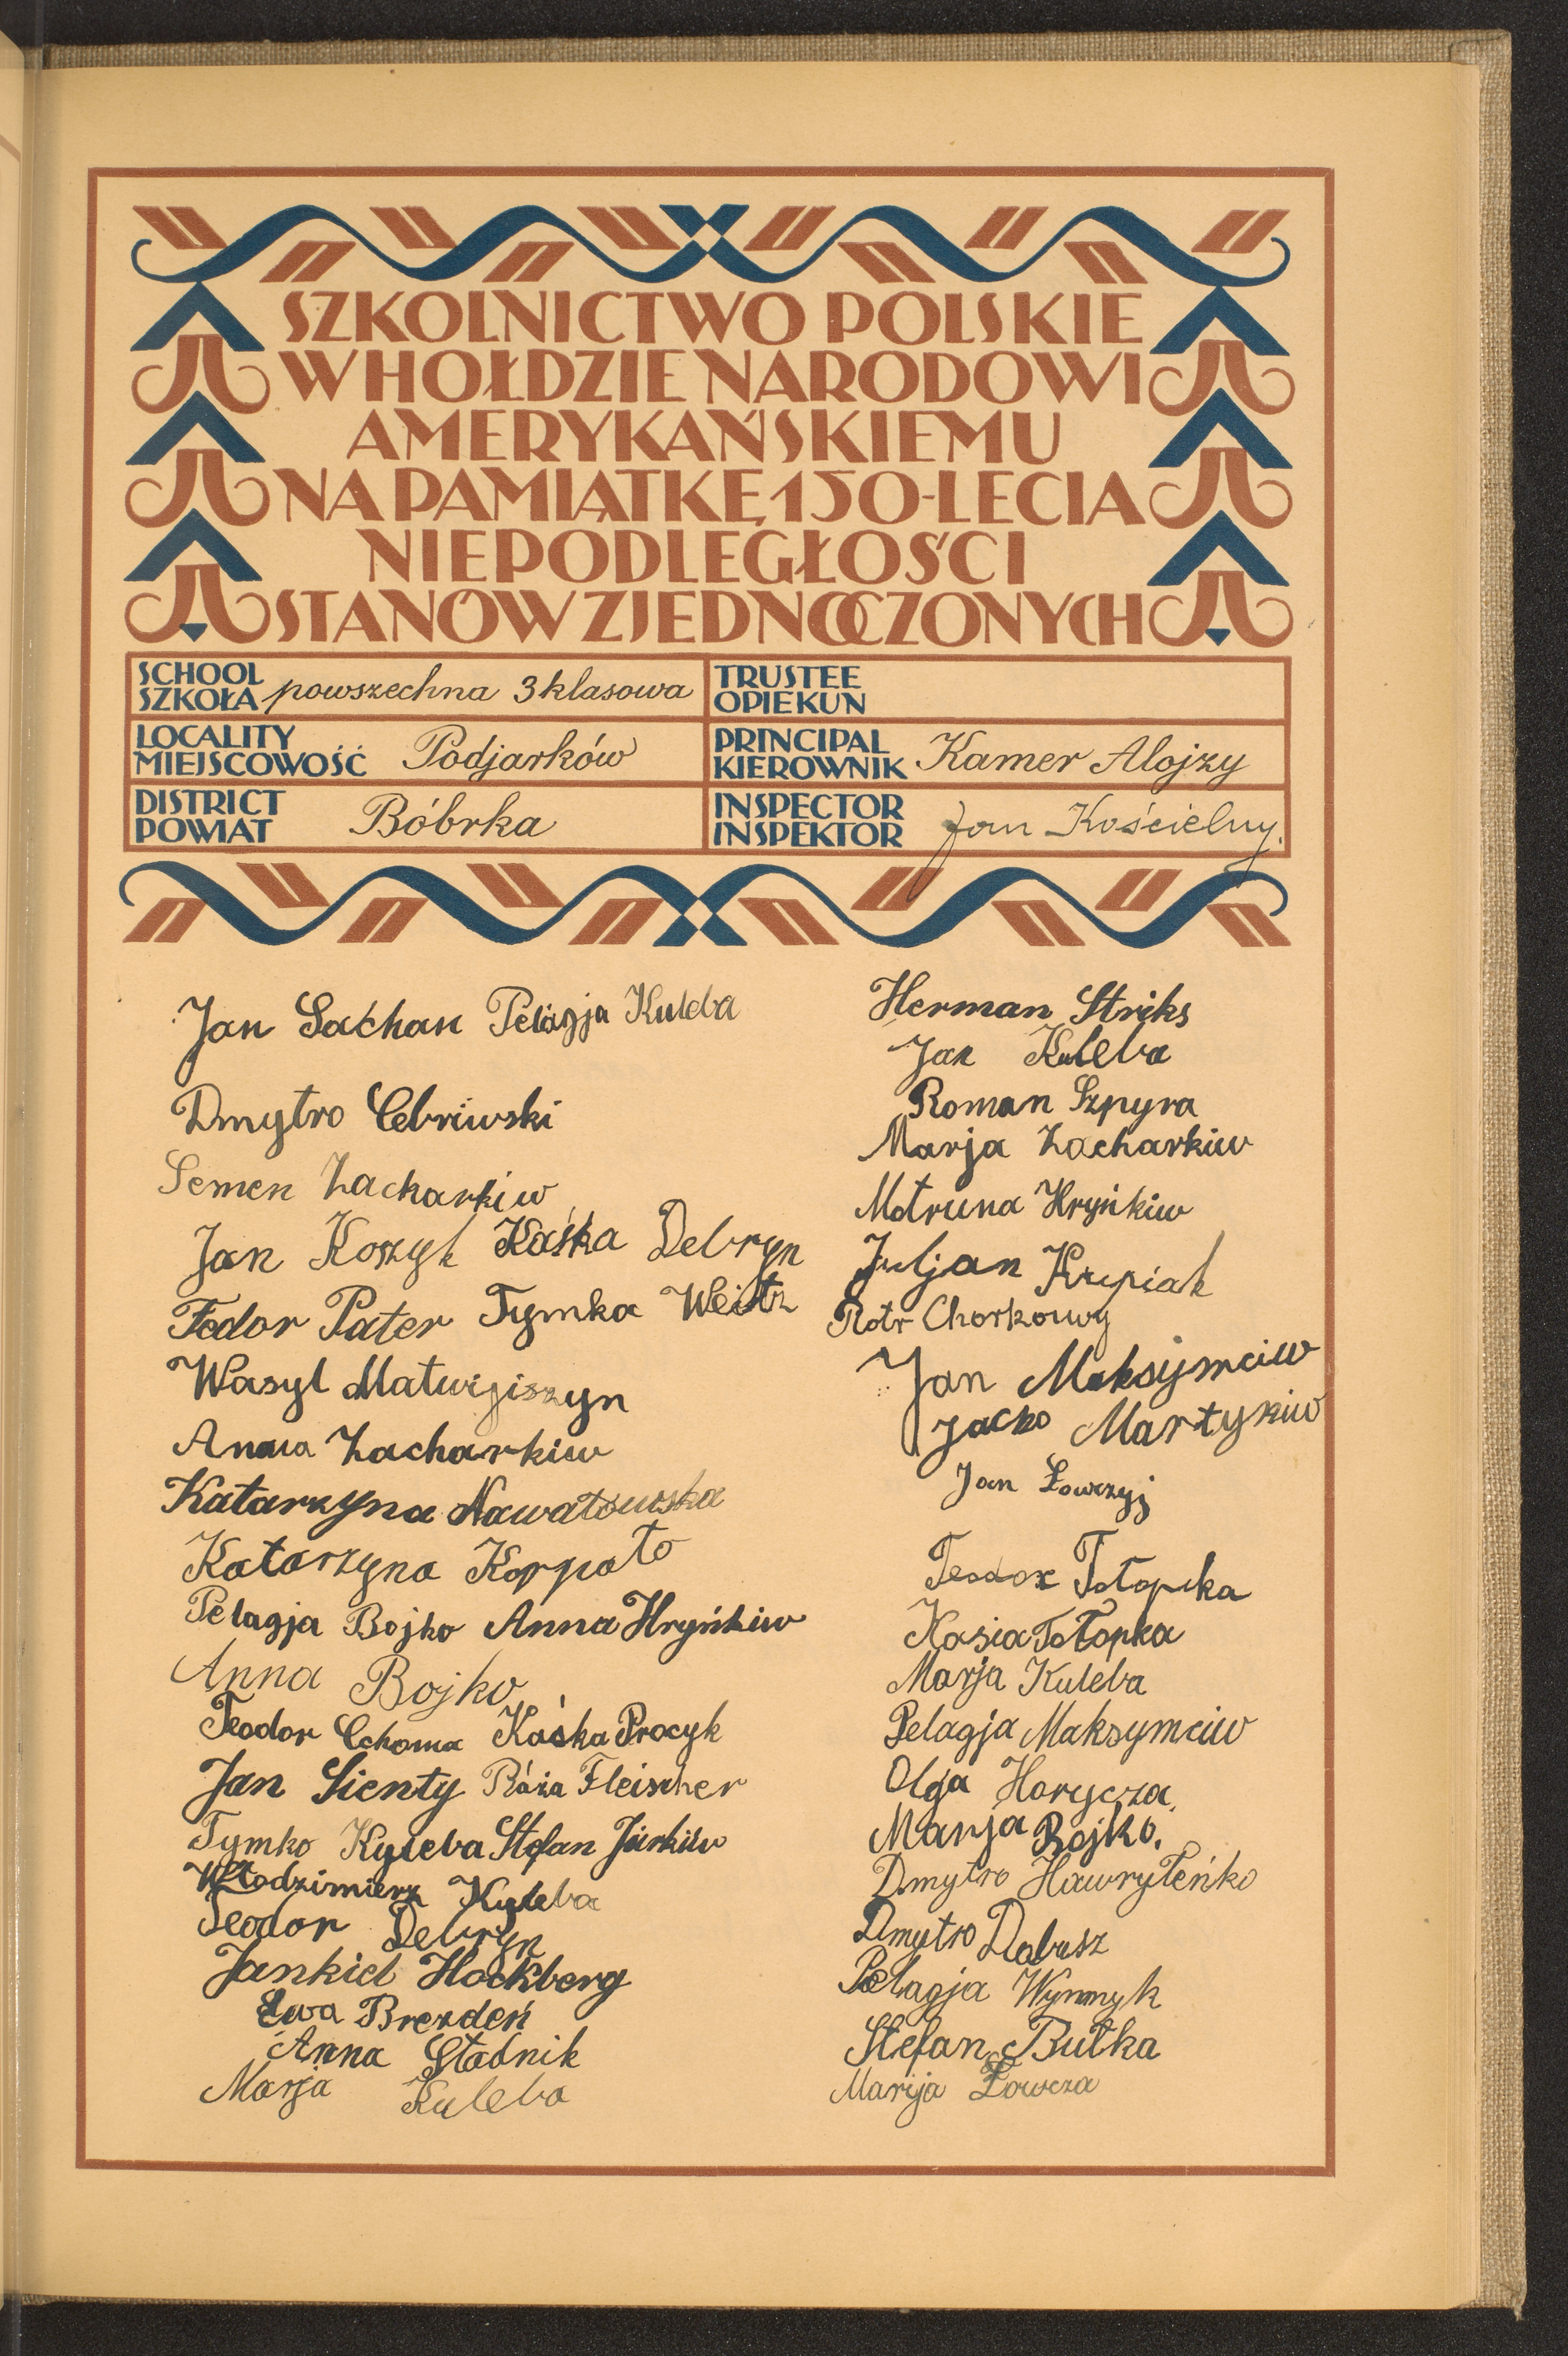 SZKOLNICTWO POLSKIE
W HOŁDZIE NARODOWI
AMERYKAŃSKIEMU
NA PAMIĄTKĘ 150-LECIA
NIEPODLEGŁOŚCI
STANÓW ZJEDNOCZONYCH
SCHOOL
SZKOŁA powszechna 3 klasowa
TRUSTEE
OPIEKUN
LOCALITY
MIEJSCOWOŚĆ Podjarków
PRINCIPAL
KIEROWNIK Kamer Alojzy
DISTRICT
POWIAT Bóbrka
INSPECTOR
INSPEKTOR Jan Kościelny.
Jan Saćhan Pelagja Kuleba
Dmytro Cebriwski
Semen Zacharkiw
Jan Koszyk Kaśka Debryn
Fedor Pater Tymka
Wasyl Matwijiszyn
Anna Zacharkiw
Katarzyna Nawatowska
Katarzyna Korpato
Pelagja Bojko Anna Hryńkiw
Anna Bojko
Teodor Cchoma Kaśka Procyk
Jan Sienty Róża Fleischer
Tymko Kyleba Stefan Jurkiw
Włodzimierz Kyleba
Teodor Debryn
Jankiel Hockberg
Ewa Brezdeń
Anna Stadnik
Marja Kuleba
Herman Striks
Jan Kuleba
Roman Szpyra
Marja Zacharkiw
Motruna Hryńkiw
Juljan Krupiak
Piotr Chorkowy
Jan Maksymciw
Jacko Martykiw
Jan Łowczyj
Teodor Totopka
Kasia Totopka
Marja Kuleba
Pelagja Maksymciw
Olga Horycza.
Marja Bojko.
Dmytro Hawryłeńko
Dmytro Dabusz
Pelagja Wynnyk
Stefan Butka
Marija Łowcza